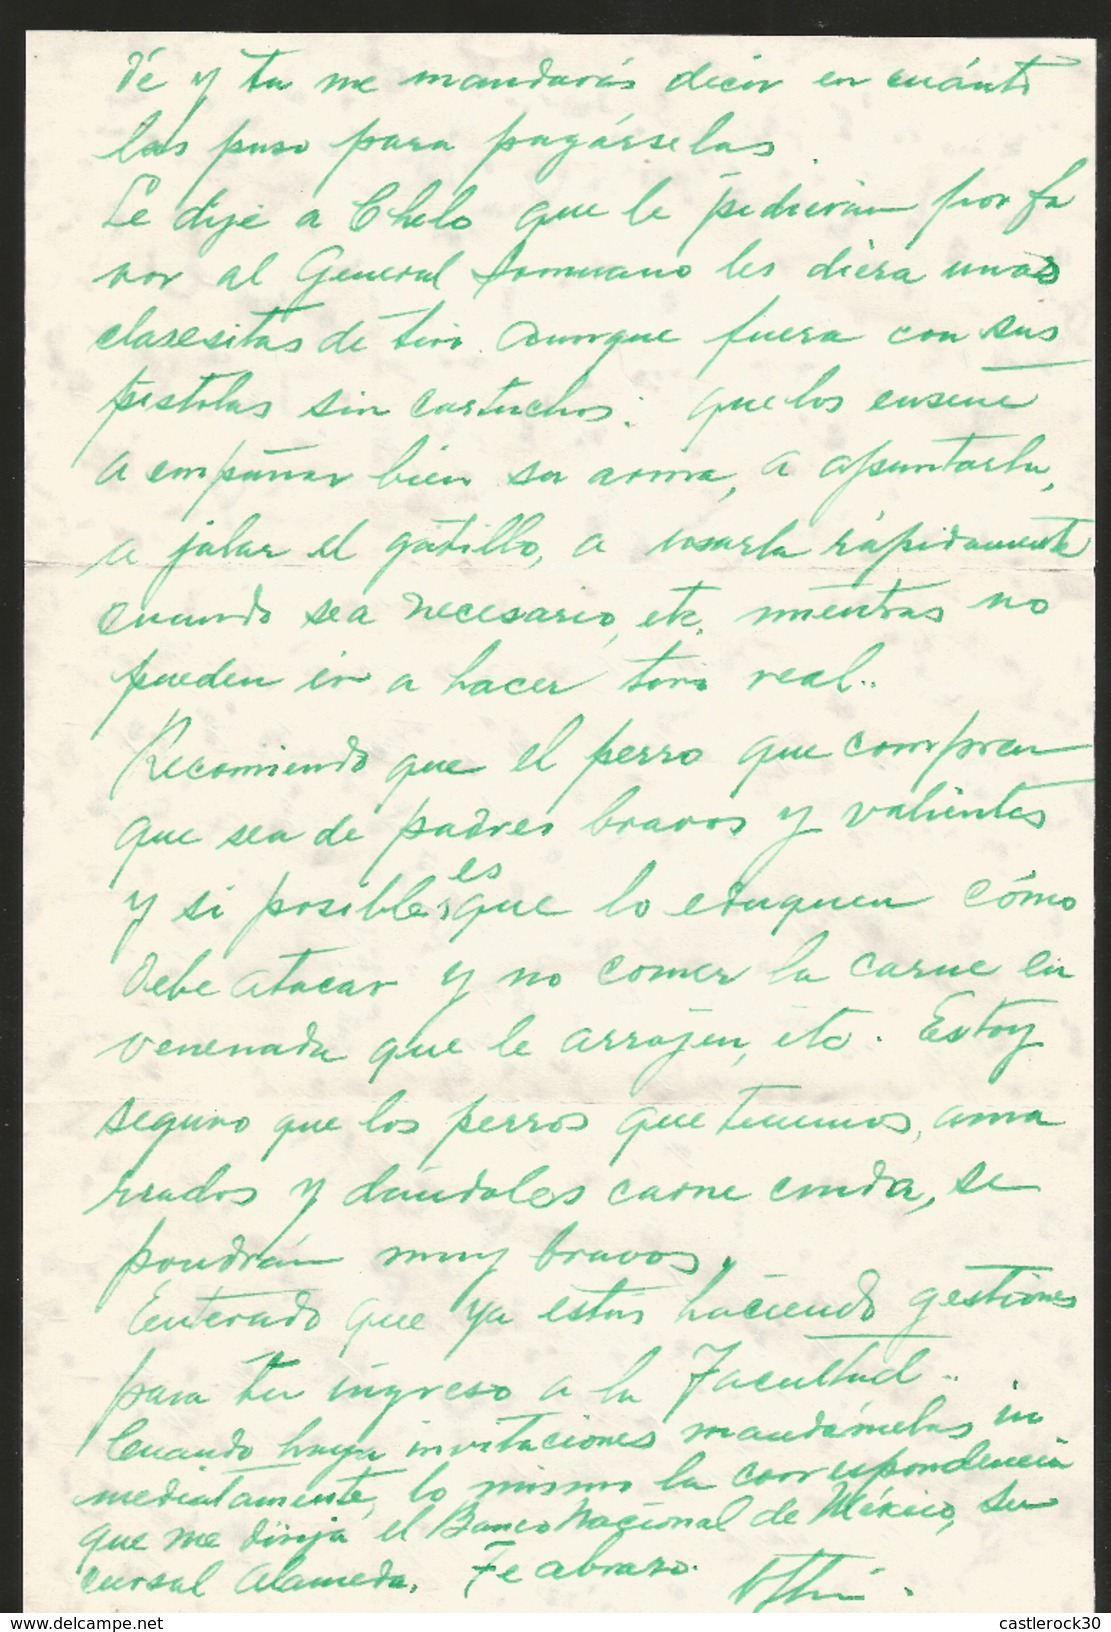 dé y tu me mandarás decir en cuánto
las puso para pagárselas.
Le dije a Chelo que le pidieran por fa
vor al General les diera unas
clasesitas de tiro aunque fuera con sus
pistolas sin cartuchos: que los enseñe
a empuñar bien su arma, a apuntarla,
a jalar el gatillo, a usarla rápidamente
cuando sea necesario, etc. mientras no
pueden ir a hacer tiro real..
Recomiendo que el perro que compren
que sea de padres bravos y valientes
y si posible, es que lo eduquen cómo
debe atacar y no comer la carne en
venenada que le arrojen, etc. Estoy
seguro que los perros que tenemos, ama
rrados y dándoles carne cruda, se
pondrán muy bravos.
Enterado que ya estás haciendo gestiones
para tu ingreso a la Facultad..
Cuando haya invitaciones mandámelas in
mediatamente, lo mismo la correspondencia
que me dirija el Banco Nacional de México, Su
cursal Alameda. Te abrazo.
delcampe.net
castlerock30